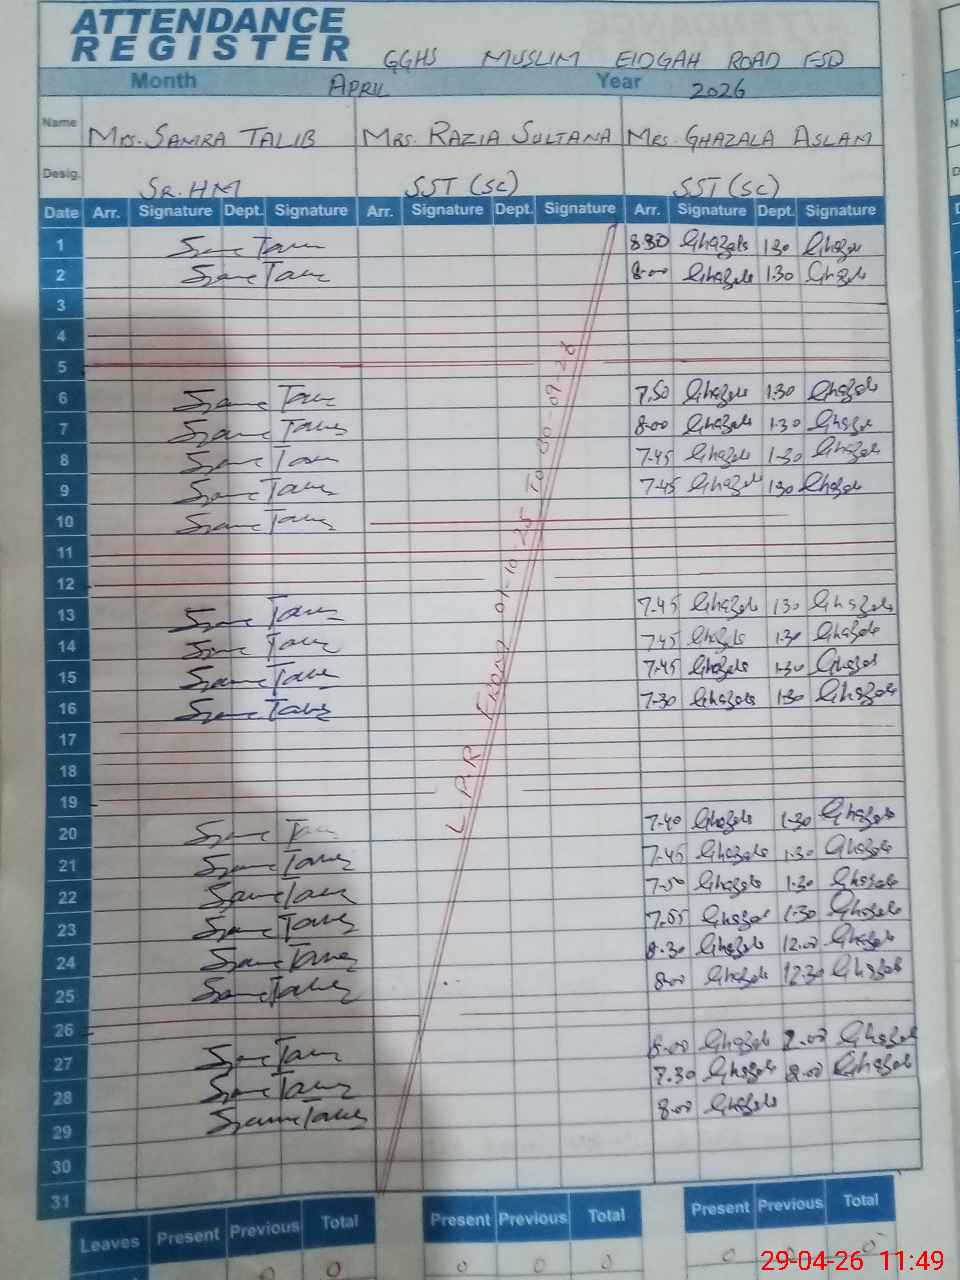 ATTENDANCE
REGISTER
GGHS MUSLIM EIDGAH ROAD FSD
Month APRIL Year 2026
Name Mrs. SAMRA TALIB MRS. RAZIA SULTANA MRS. GHAZALA ASLAM
Desig. SR. HM SST (SC) SST (SC)
Date Arr. Signature Dept. Signature Arr. Signature Dept. Signature Arr. Signature Dept. Signature
1 8.30 Ghazala 1.30 Ghazala
2 8.00 Ghazala 1.30 Ghazala
3
4
5
6 7.50 Ghazala 1.30 Ghazala
7 8.00 Ghazala 1.30 Ghazala
8 7.45 Ghazala 1.30 Ghazala
9 7.45 Ghazala 1.30 Ghazala
10
11
12
L.P.R FROM 01-10-25 TO
13 7.45 Ghazala 1.30 Ghazala
14 7.45 Ghazala 1.30 Ghazala
15 7.45 Ghazala 1.30 Ghazala
16 7.30 Ghazala 1.30 Ghazala
17
18
19
20 7.40 Ghazala 1.30 Ghazala
21 7.45 Ghazala 1.30 Ghazala
22 7.50 Ghazala 1.30 Ghazala
23 7.55 Ghazala 1.30 Ghazala
24 8.30 Ghazala 12.00 Ghazala
25 8.00 Ghazala 12.30 Ghazala
26
27 8.00 Ghazala 2.00 Ghazala
28 7.30 Ghazala 2.00 Ghazala
29 8.00 Ghazala
30
31
Leaves Present Previous Total Present Previous Total Present Previous Total
0 0 0 0 0 0 0 0
29-04-26 11:49